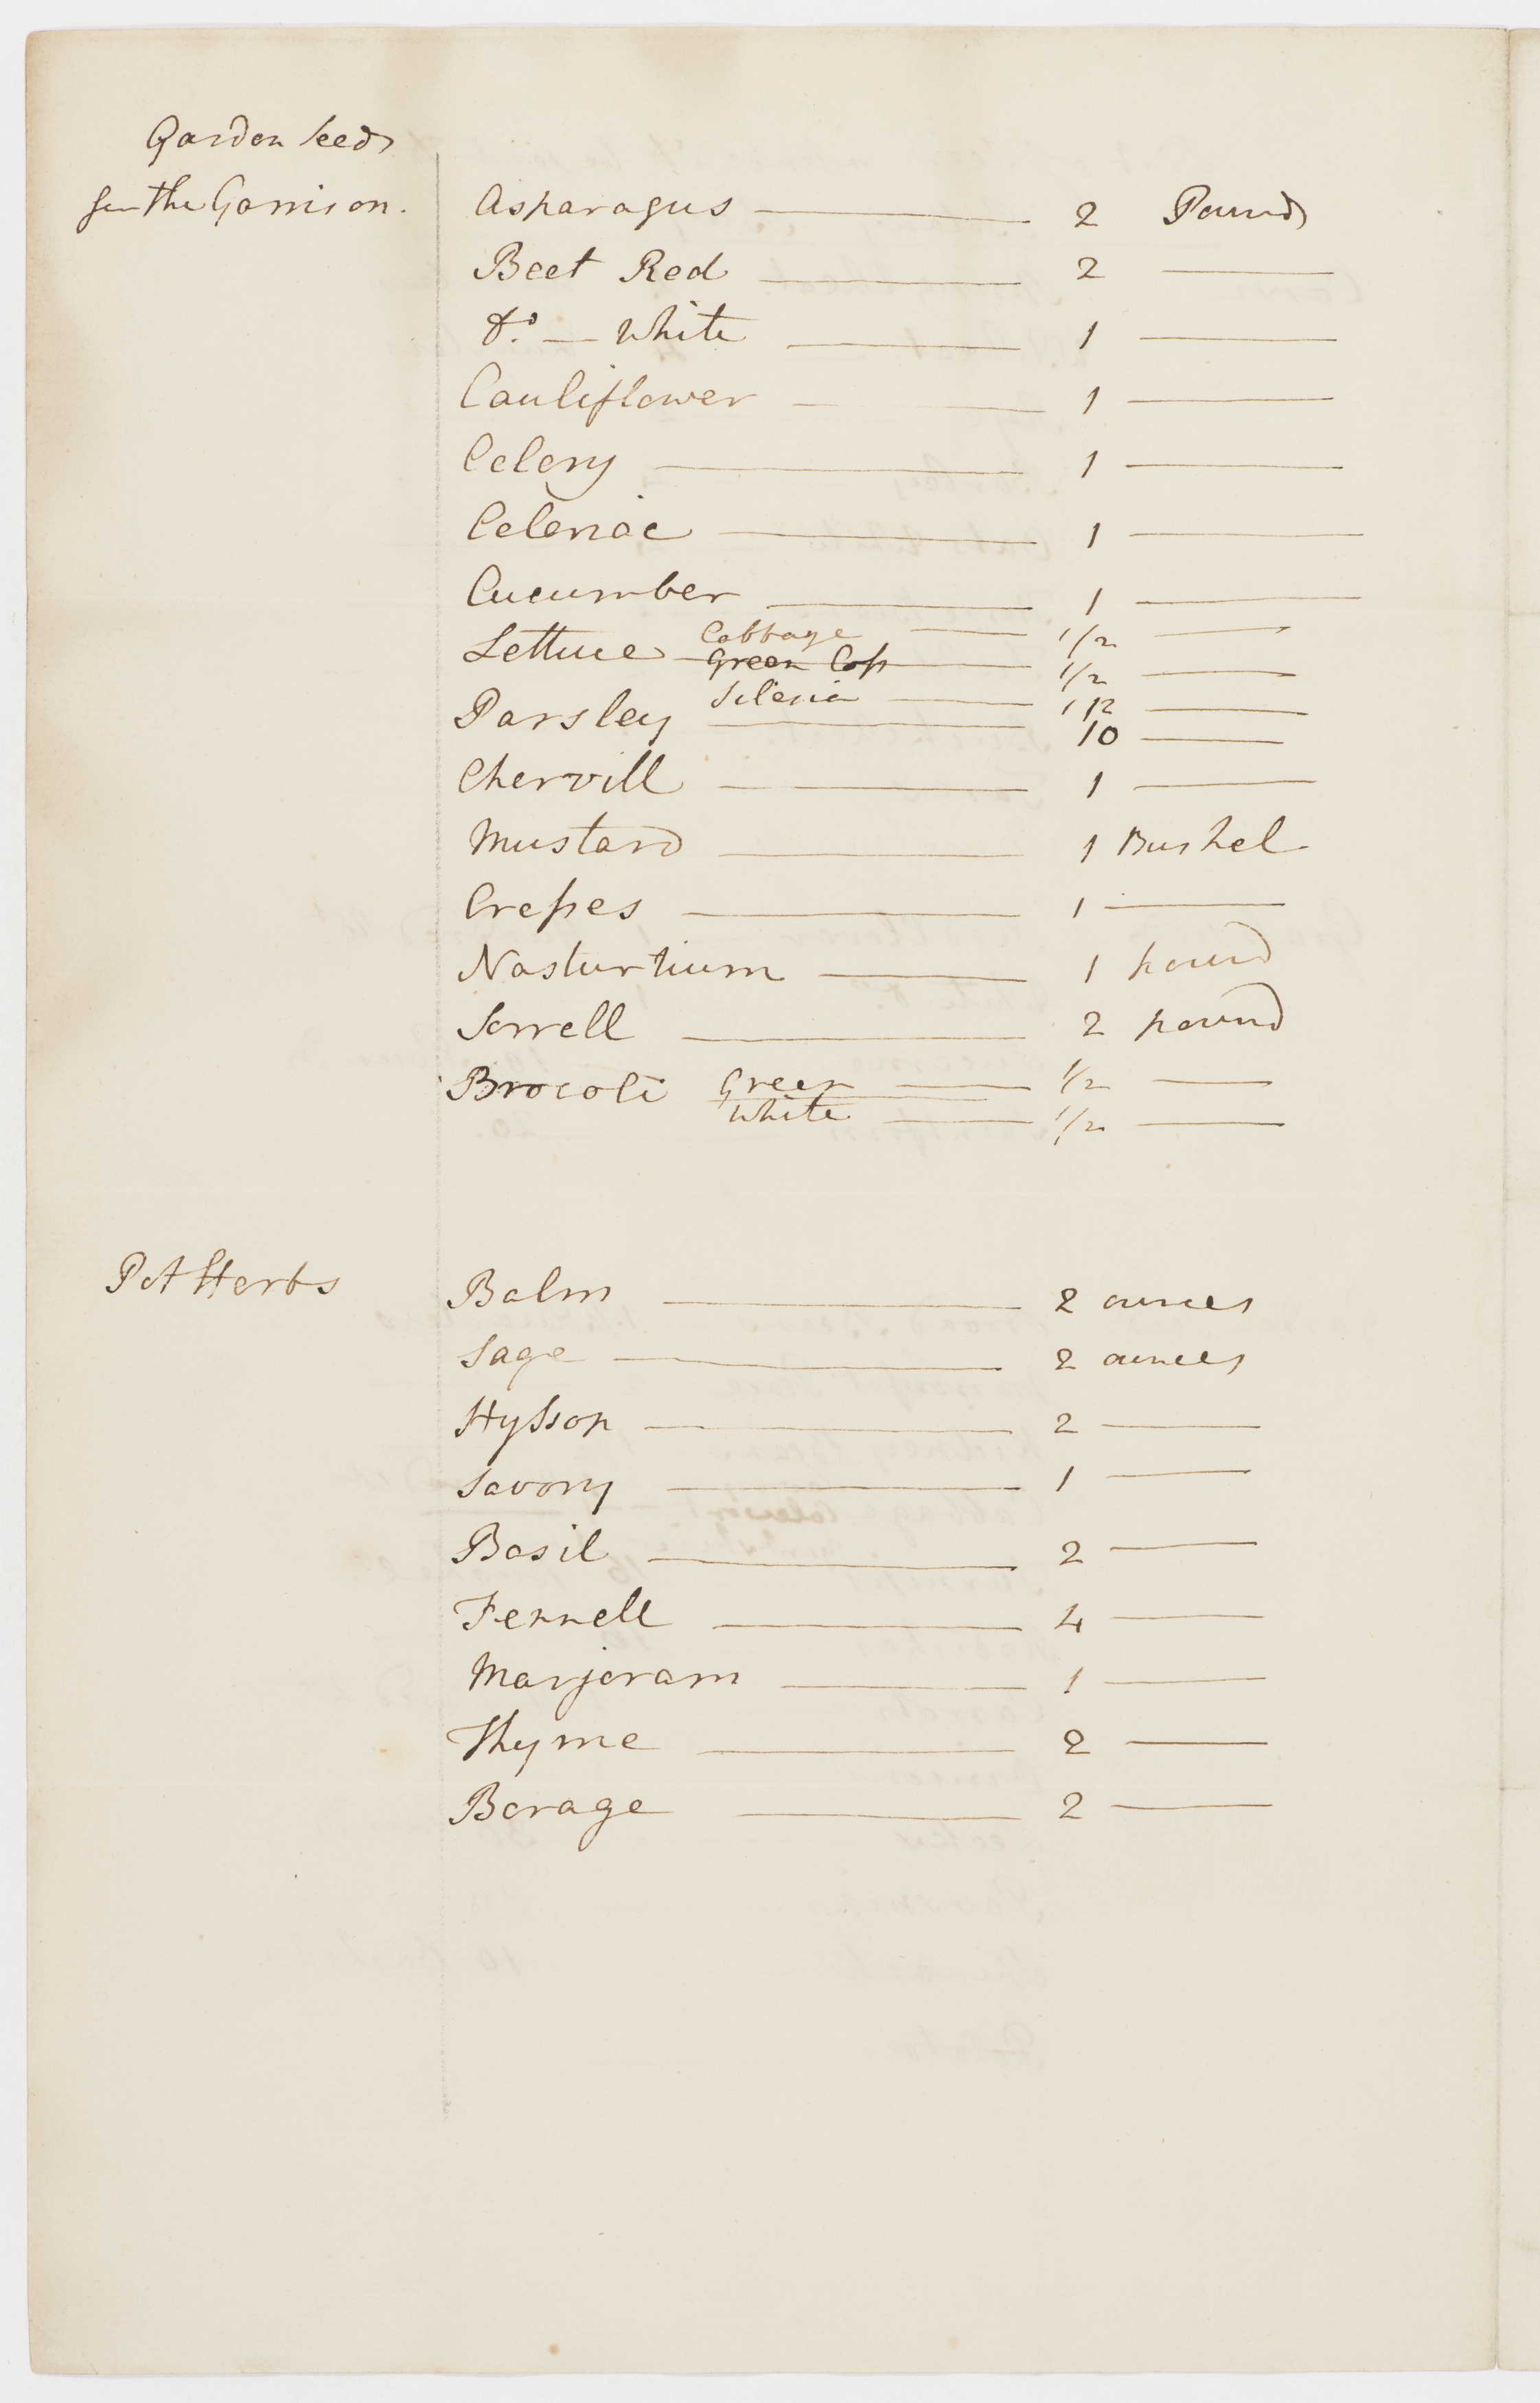 Garden Seeds
for the Garrison.
Asparagus — 2 Pounds
Beet Red — 2 —
Do. — White — 1 —
Cauliflower — 1 —
Celery — 1 —
Celeriac — 1 —
Cucumber — 1 —
Lettuce Cabbage — 1/2 —
Green Coss — 1/2 —
Silesia — 1/2 —
Parsley — 10 —
Chervill — 1 —
Mustard — 1 Bushel
Cresses — 1 —
Nasturtium — 1 pound
Sorrell — 2 pound
Brocoli Green — 1/2 —
White — 1/2 —
Pot Herbs
Balm — 2 ounces
Sage — 2 ounces
Hyssop — 2 —
Savory — 1 —
Basil — 2 —
Fennell — 4 —
Marjoram — 1 —
Thyme — 2 —
Borage — 2 —